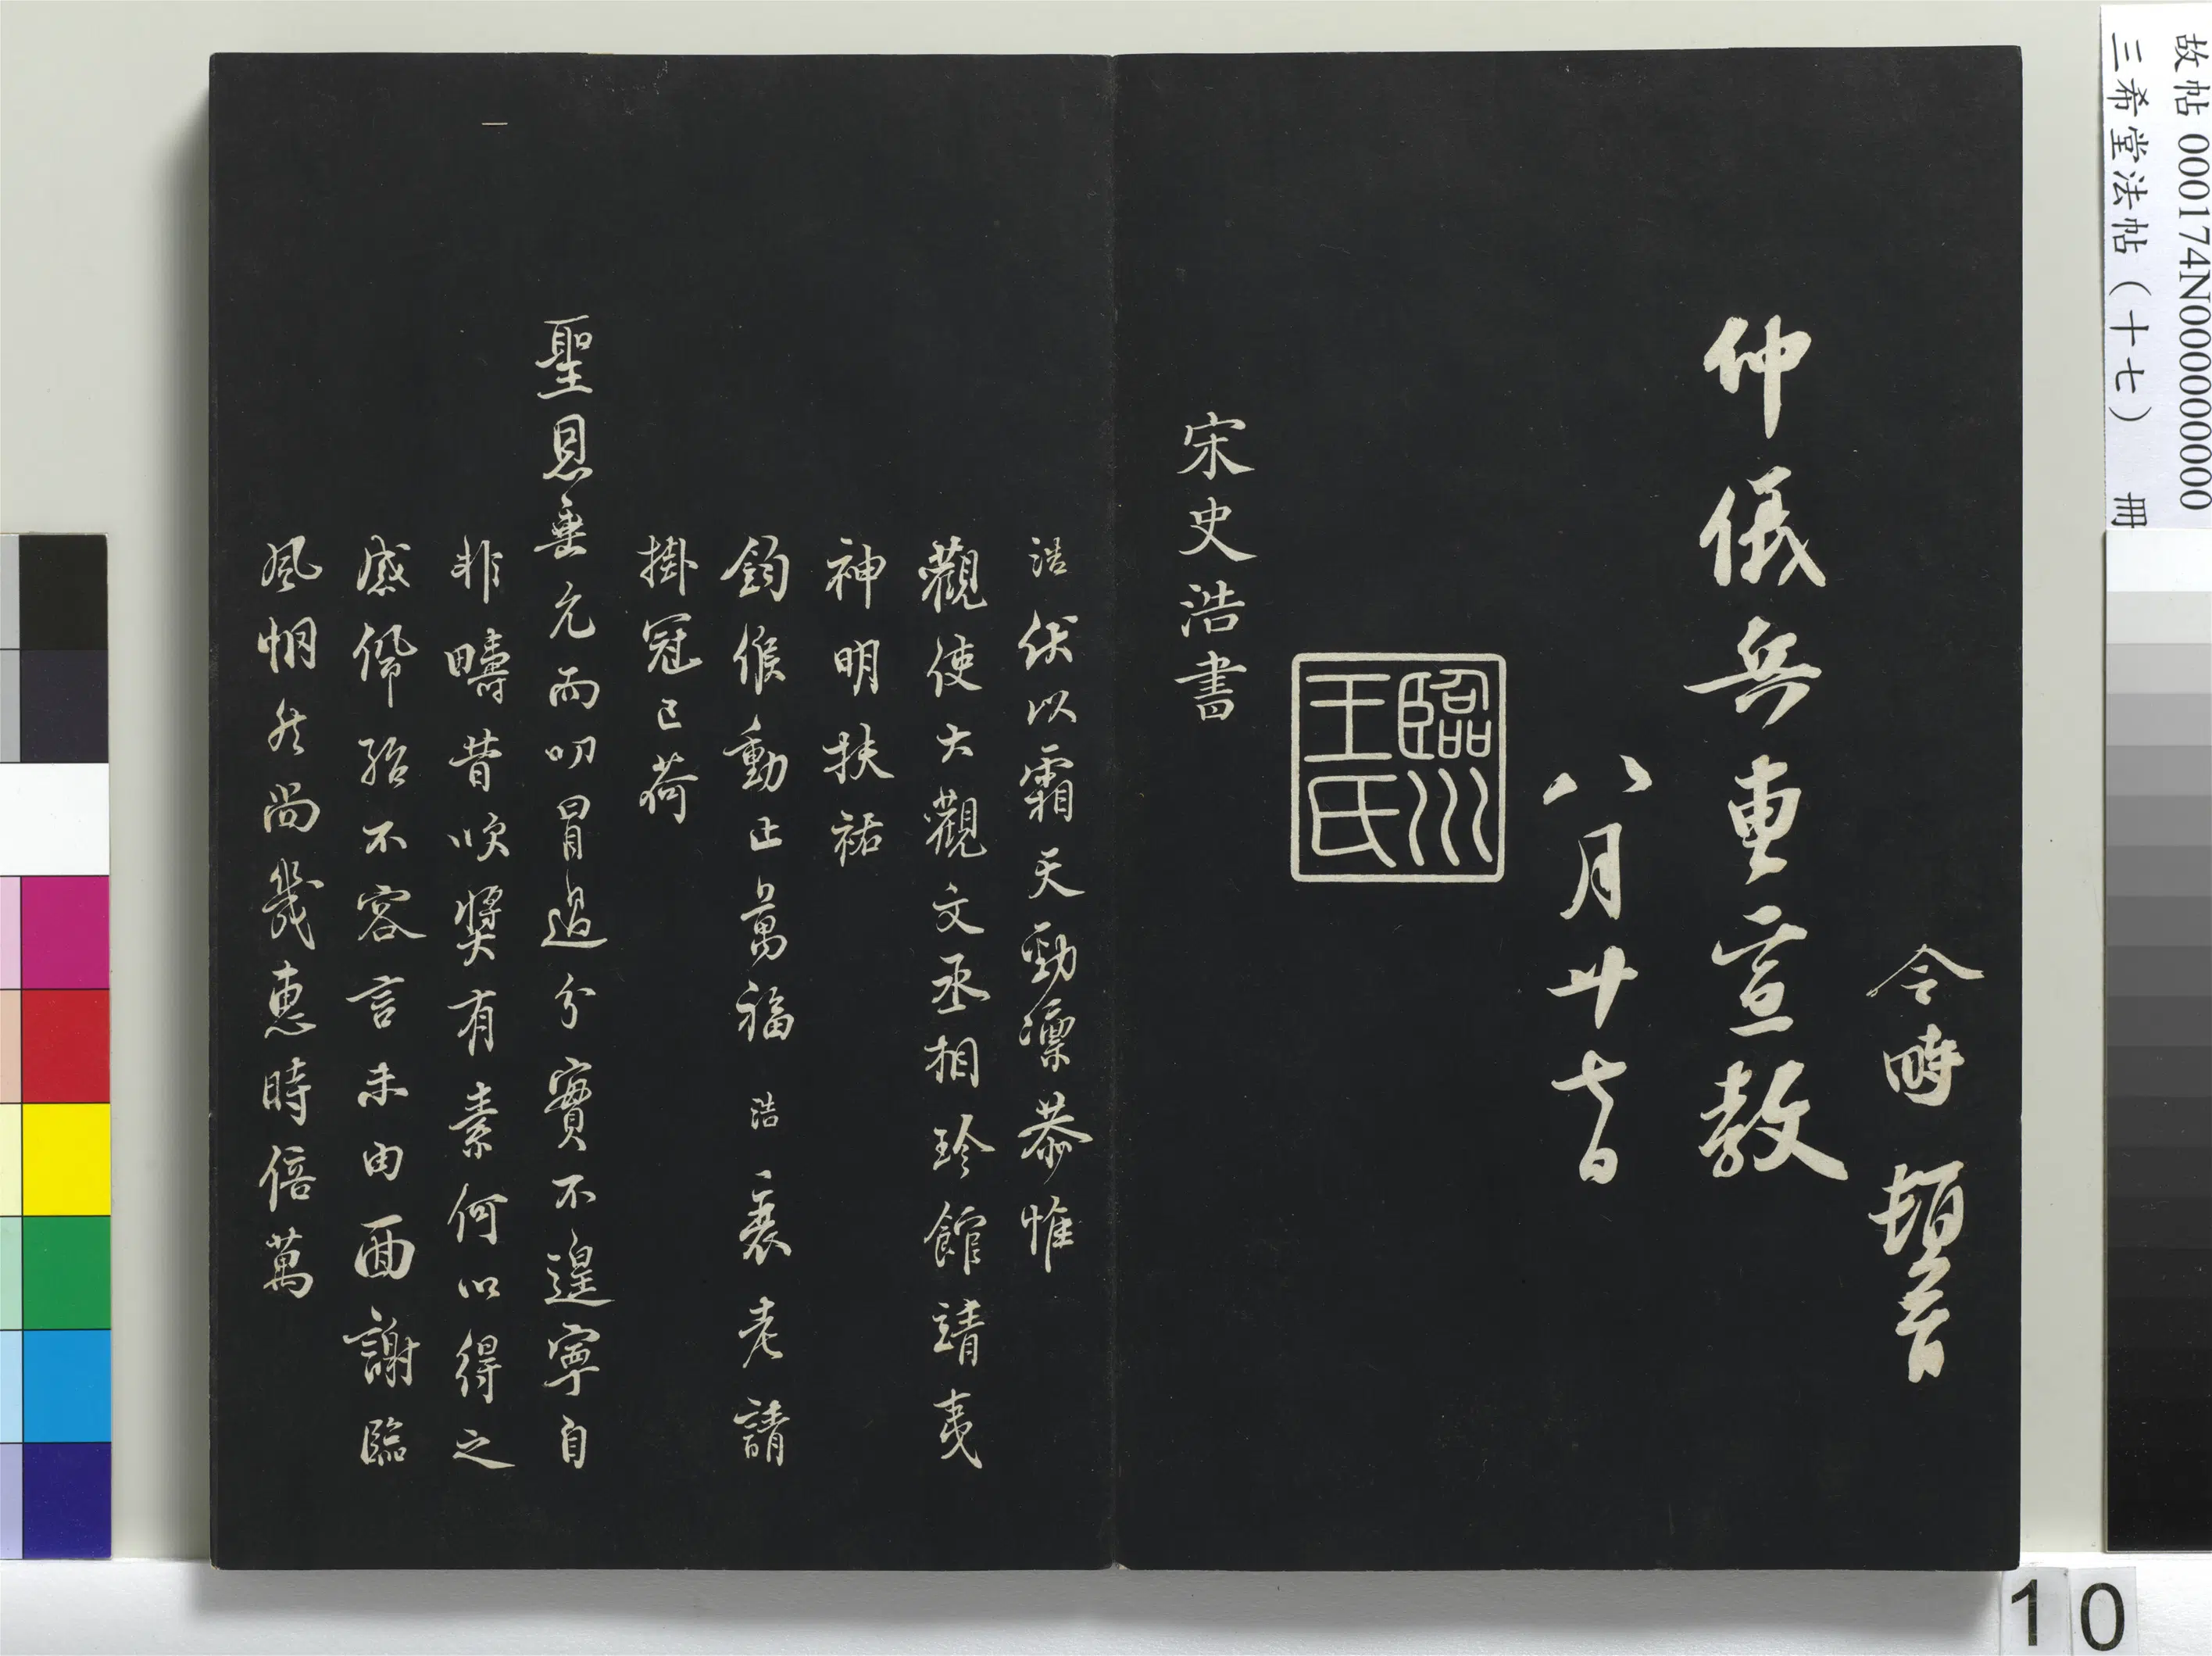 故帖000174N000000000
三希堂法帖（十七） 冊
令畤 頓首
仲儀兵曹宣教
八月廿七日
臨川
王氏
宋史浩書
浩伏以霜天勁凜恭惟
觀使大觀文丞相珍館靖夷
神明扶祐
鈞候動止萬福 浩 衰老請
掛冠已荷
聖恩垂允而叨冒過分實不遑寧自
非疇昔吹獎有素何以得之
感佩殆不容言未由面謝臨
風惘然尚幾惠時倍萬
10